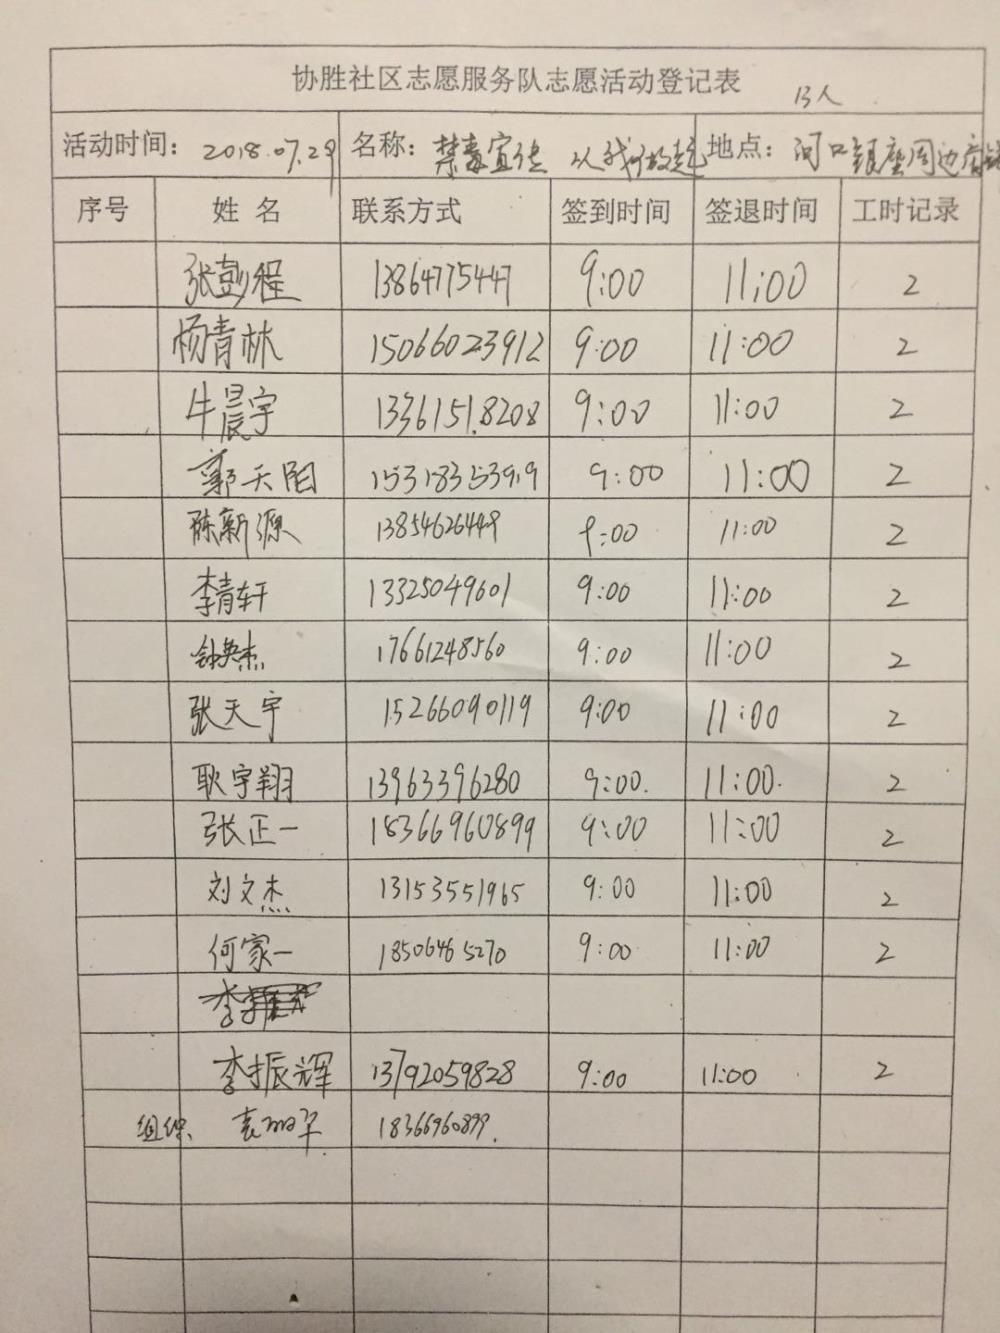 协胜社区志愿服务队志愿活动登记表
13人
活动时间：2018.07.29 名称：禁毒宣传 从我做起 地点：河口 周边商铺
序号 姓名 联系方式 签到时间 签退时间 工时记录
张彭程 13864775447 9:00 11:00 2
杨青林 15066023912 9:00 11:00 2
牛晨宇 13361518208 9:00 11:00 2
郭天阳 15318353919 9:00 11:00 2
陈新源 13854626449 9:00 11:00 2
李青轩 13325049601 9:00 11:00 2
钟英杰 17661248560 9:00 11:00 2
张天宇 15266090119 9:00 11:00 2
耿宇翔 13963396280 9:00. 11:00. 2
张正一 18366960899 9:00 11:00 2
刘文杰 13153551965 9:00 11:00 2
何家一 18506465270 9:00 11:00 2
李振辉 13792059828 9:00 11:00 2
组织 18366960899.